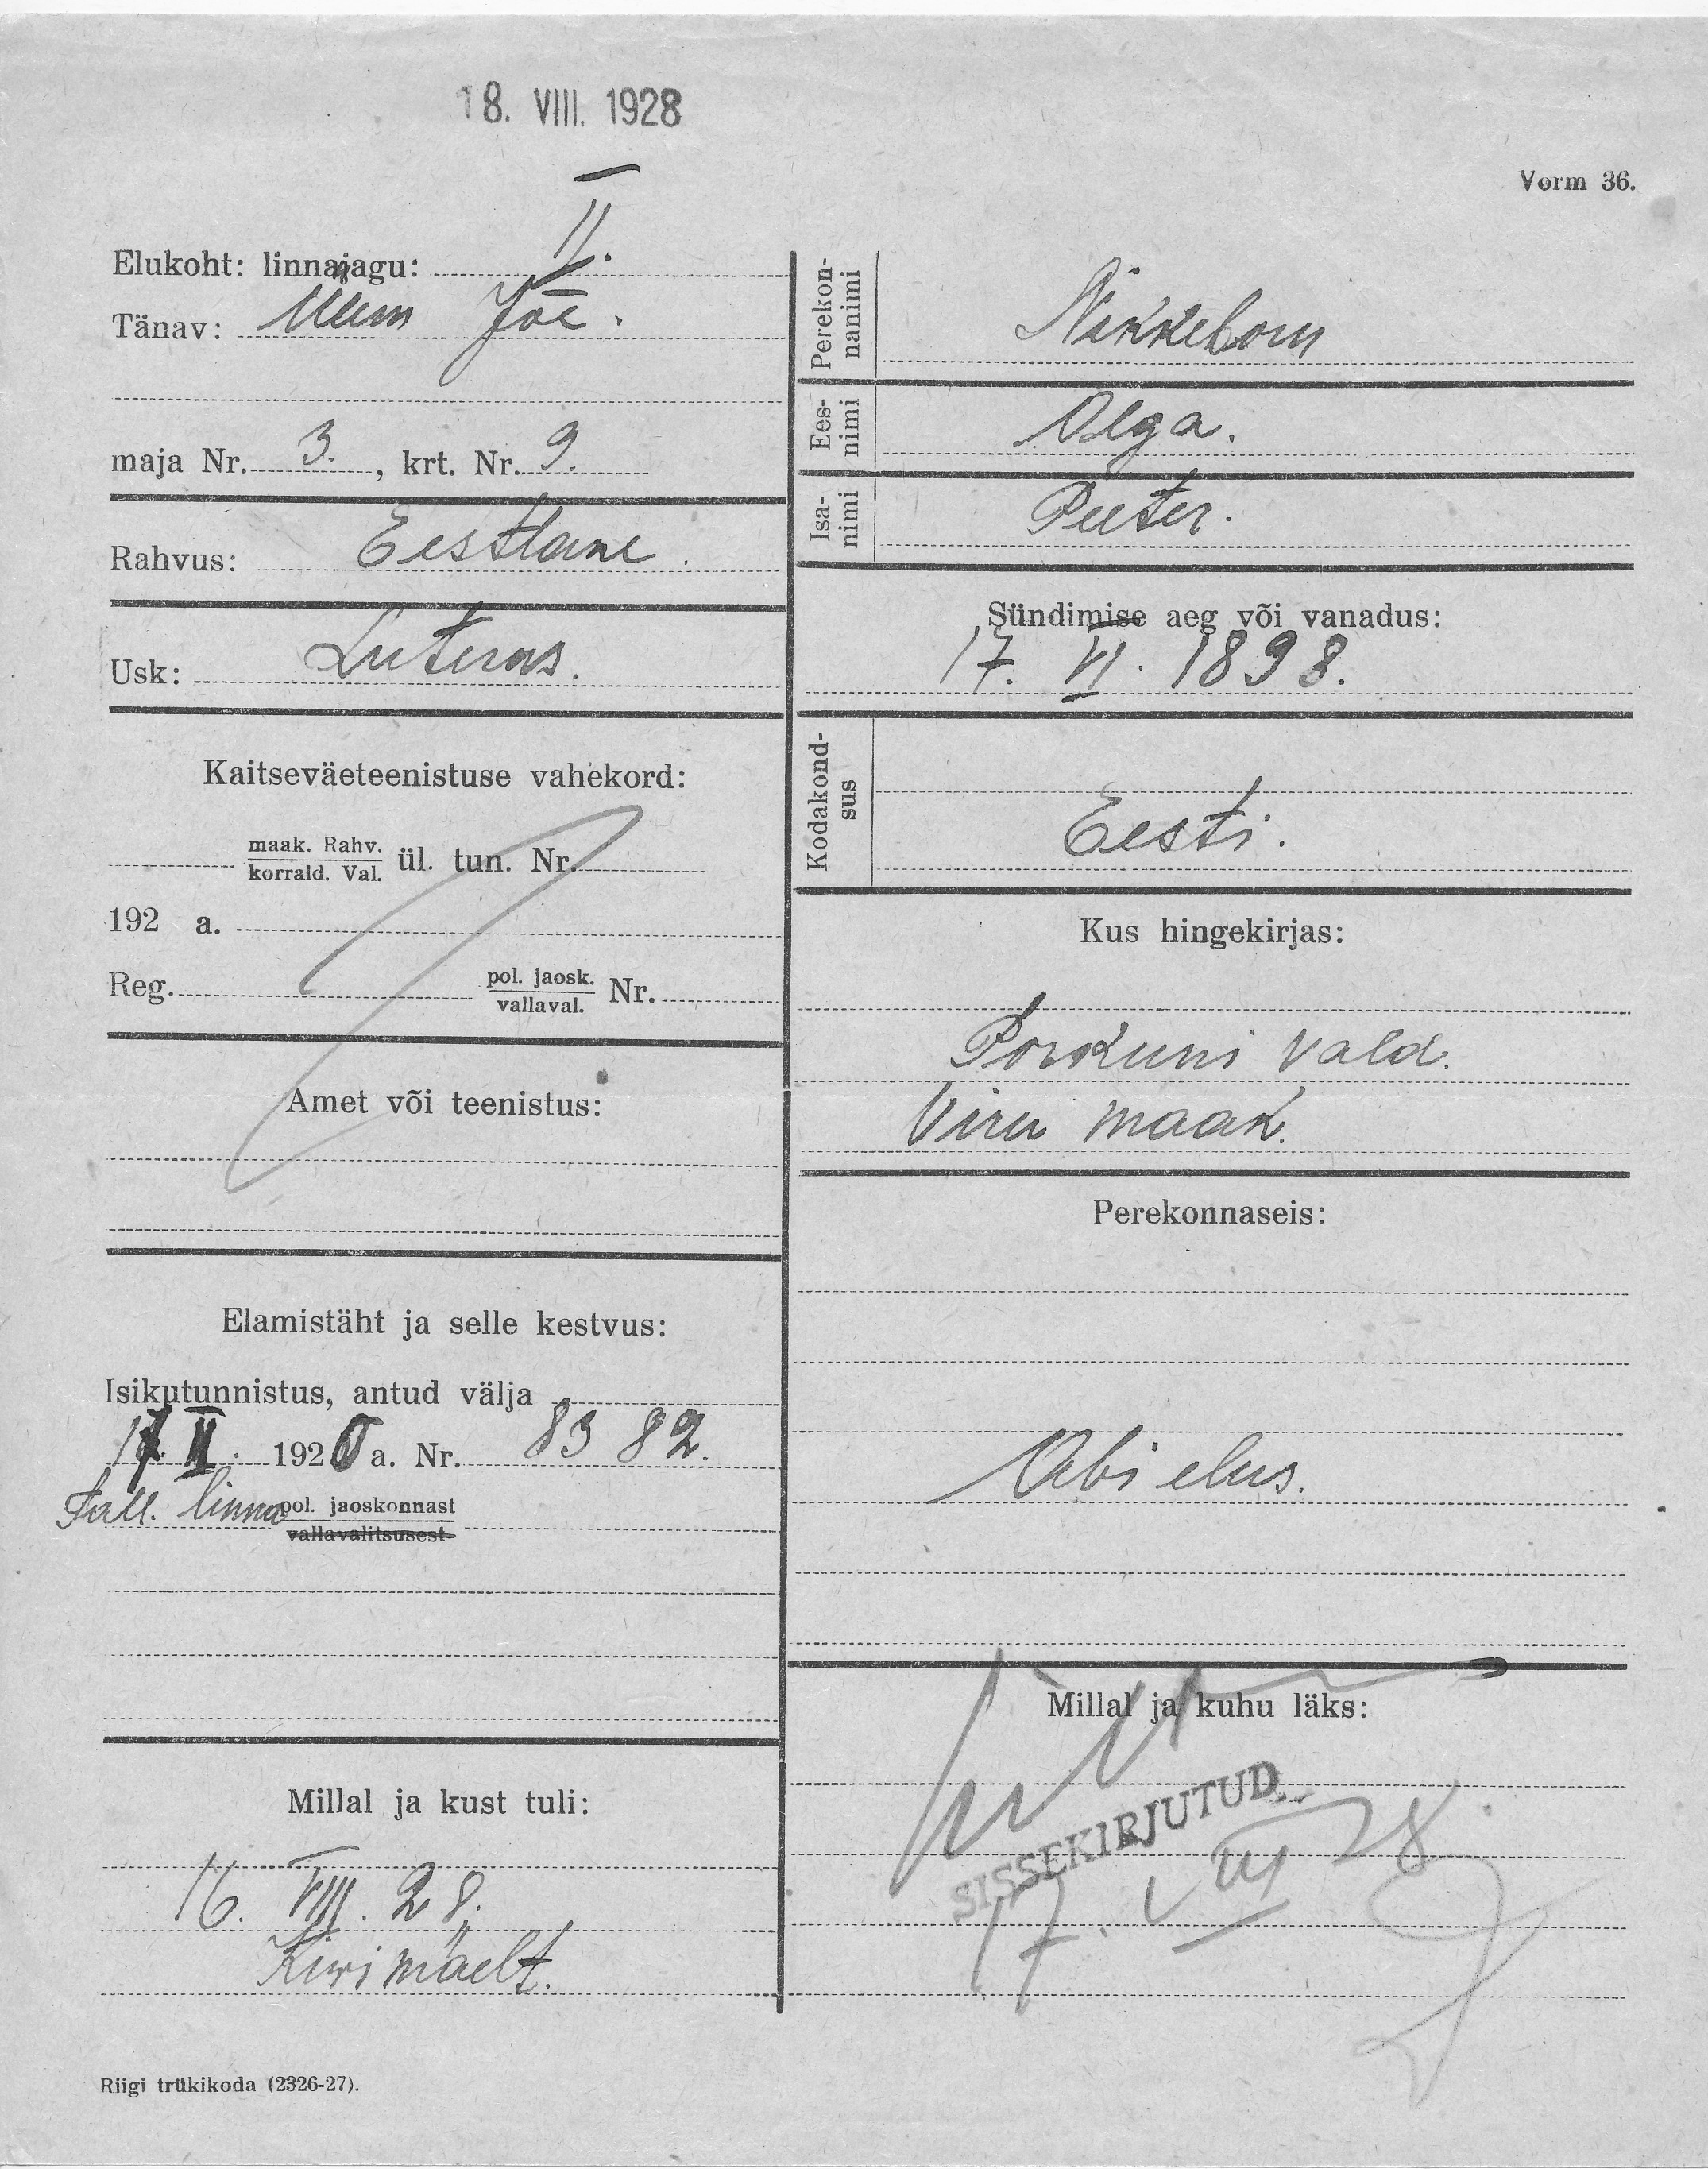 18. VIII. 1928
Vorm 36.
Elukoht: linnajagu: II.
Tänav: Jõe.
maja Nr. 3. , krt. Nr. 9.
Rahvus: Eestlane.
Usk: Luterus.
Kaitseväeteenistuse vahekord:
maak. Rahv.
korrald. Val. ül. tun. Nr.
192 a.
Reg. pol. jaosk.
vallaval. Nr.
Amet või teenistus:
Elamistäht ja selle kestvus:
Isikutunnistus, antud välja
17. II. 192 a. Nr. 83 82.
Tall. linna pol. jaoskonnast
vallavalitsusest
Millal ja kust tuli:
16. VIII. 28.
Kivimäelt.
Riigi trükikoda (2326-27).
Perekon-
nanimi
Nikkeborn
Ees-
nimi
Olga.
Isa-
nimi
Peeter.
Sündimise aeg või vanadus:
17. VI. 1898.
Kodakond-
sus
Eesti.
Kus hingekirjas:
Porkuni vald.
Viru maak.
Perekonnaseis:
Abielus.
Millal ja kuhu läks:
SISSEKIRJUTUD
17. VIII 28.